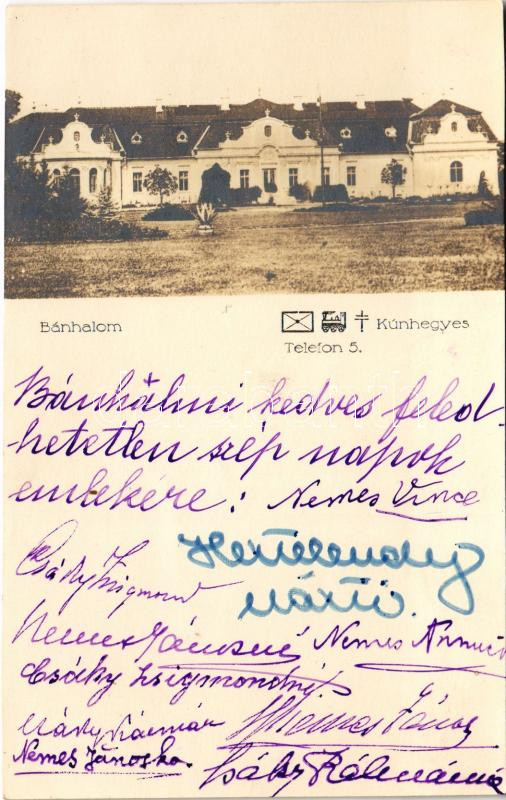 Bánhalom
Kúnhegyes
Telefon 5.
Bánhalmi kedves feled-
hetetlen szép napok
emlékére: Nemes Vince
Csáky Zsigmond
Hertelendy
Nemes Jánosné Nemes Annuska
Csáky Zsigmondné
Nemes János
Nemes Jánoska.
Csáky Kálmánné